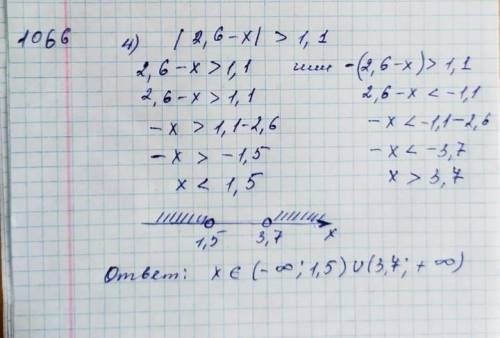 1066 4) |2,6-x| > 1,1
2,6-x > 1,1 или -(2,6-x) > 1,1
2,6-x > 1,1 2,6-x < -1,1
-x > 1,1-2,6 -x < -1,1-2,6
-x > -1,5 -x < -3,7
x < 1,5 x > 3,7
1,5 3,7 x
Ответ: x ∈ (-∞; 1,5) ∪ (3,7; +∞)